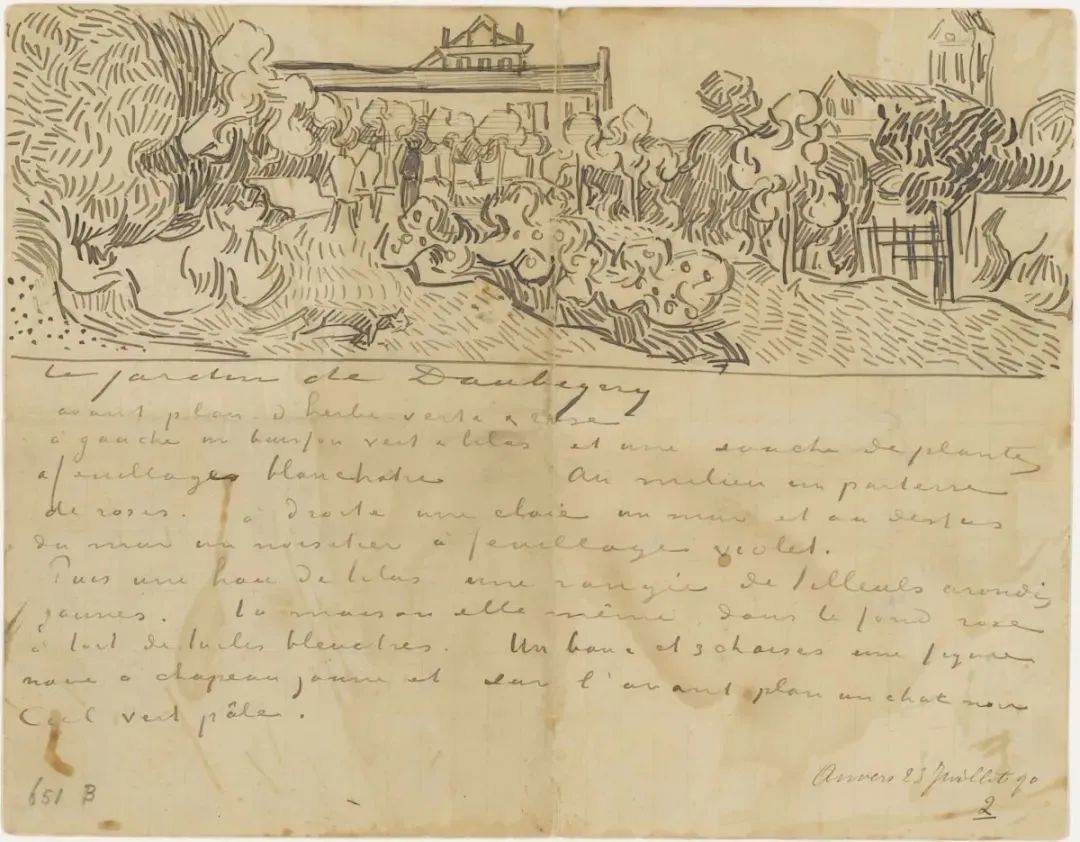 le jardin de Daubigny
avant plan d'herbe verte & rose
à gauche un buisson vert & lilas et une souche de plantes
à feuillages blanchatre. Au milieu un parterre
de roses. à droite une claie un mur et au dessus
du mur un noisetier à feuillages violet.
Puis une haie de lilas une rangée de tilleuls arondis
jaunes. La maison elle même dans le fond rose
à toit de tuiles bleuatres. Un banc et 3 chaises une figure
noire à chapeau jaune et sur l'avant plan un chat noir
Ciel vert pâle.
Auvers 23 Juillet 90
651 B
2